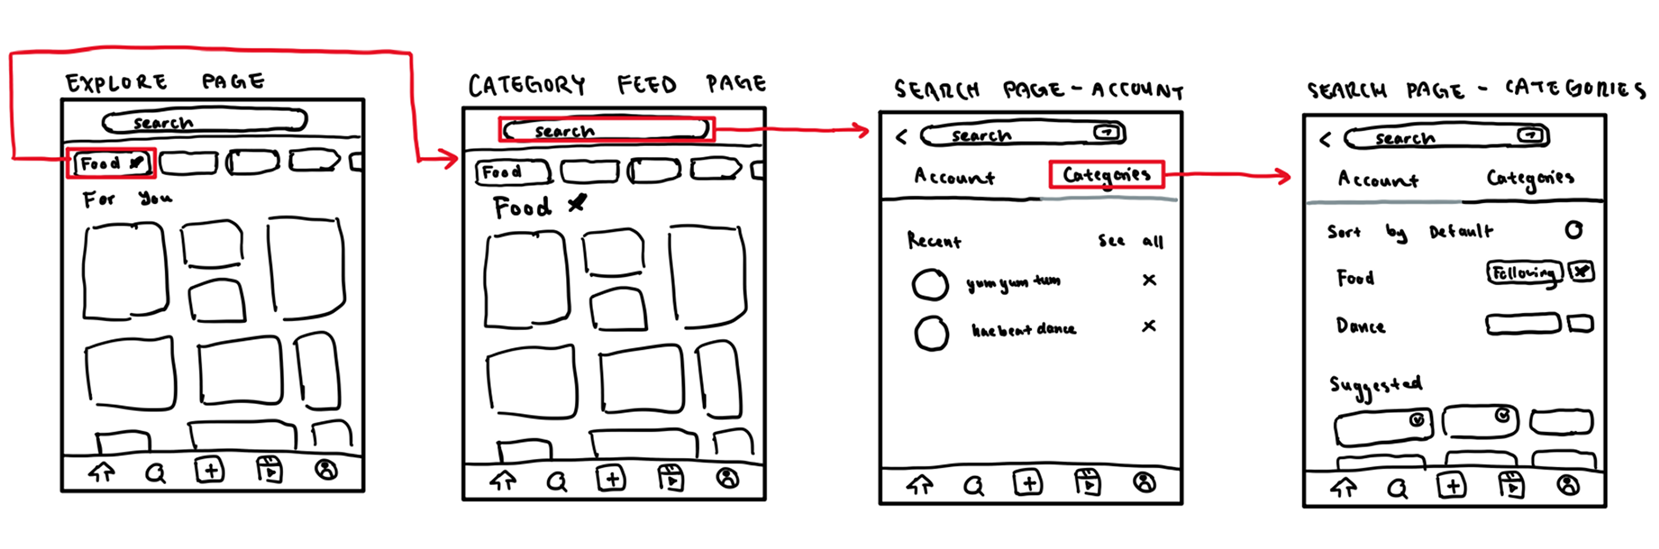 EXPLORE PAGE
search
Food
For You
CATEGORY FEED PAGE
search
Food
Food
SEARCH PAGE - ACCOUNT
search
Account Categories
Recent See all
yum yum tum
hae beat dance
SEARCH PAGE - CATEGORIES
search
Account Categories
Sort by Default
Food Following
Dance
Suggested